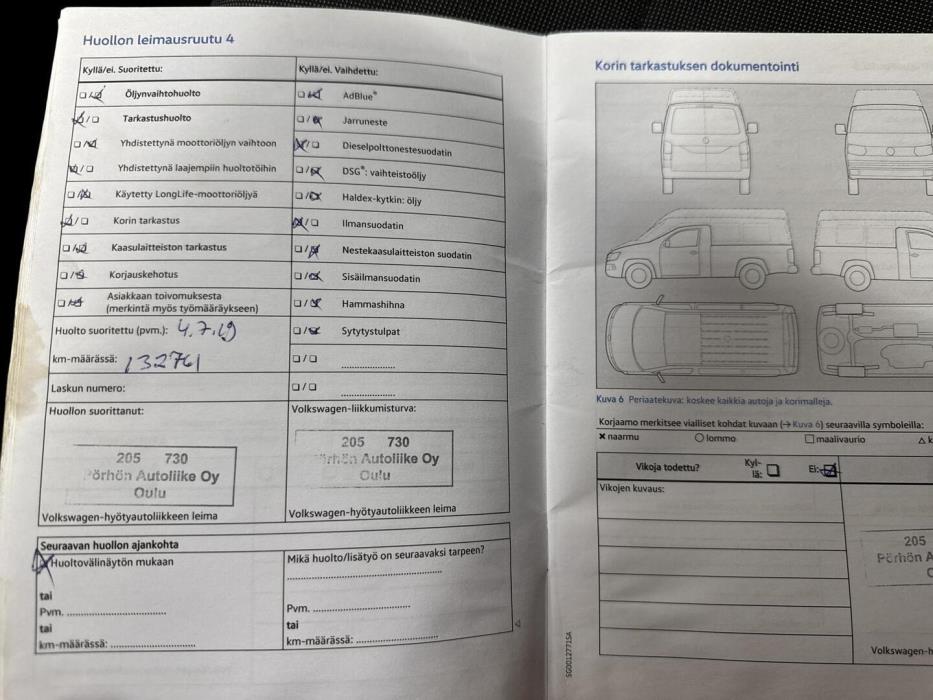 Huollon leimausruutu 4
Kyllä/ei. Suoritettu:
Öljynvaihtohuolto
Tarkastushuolto
Yhdistettynä moottoriöljyn vaihtoon
Yhdistettynä laajempiin huoltotöihin
Käytetty LongLife-moottoriöljyä
Korin tarkastus
Kaasulaitteiston tarkastus
Korjauskehotus
Asiakkaan toivomuksesta
(merkintä myös työmääräykseen)
Huolto suoritettu (pvm.): 4.7.19
km-määrässä: 132761
Laskun numero:
Huollon suorittanut:
205 730
Pörhön Autoliike Oy
Oulu
Volkswagen-hyötyautoliikkeen leima
Kyllä/ei. Vaihdettu:
AdBlue®
Jarruneste
Dieselpolttonestesuodatin
DSG®: vaihteistoöljy
Haldex-kytkin: öljy
Ilmansuodatin
Nestekaasulaitteiston suodatin
Sisäilmansuodatin
Hammashihna
Sytytystulpat
Volkswagen-liikkumisturva:
205 730
Autoliike Oy
Oulu
Volkswagen-hyötyautoliikkeen leima
Seuraavan huollon ajankohta
Huoltovälinäytön mukaan
tai
Pvm.
tai
km-määrässä:
Mikä huolto/lisätyö on seuraavaksi tarpeen?
Pvm.
tai
km-määrässä:
Korin tarkastuksen dokumentointi
Kuva 6 Periaatekuva: koskee kaikkia autoja ja korimalleja.
Korjaamo merkitsee vialliset kohdat kuvaan (→ Kuva 6) seuraavilla symboleilla:
× naarmu ○ lommo □ maalivaurio △ k
Vikoja todettu? Kyl-
lä: Ei:
Vikojen kuvaus:
205
Pörhön A
Volkswagen-h
SG0012771SA